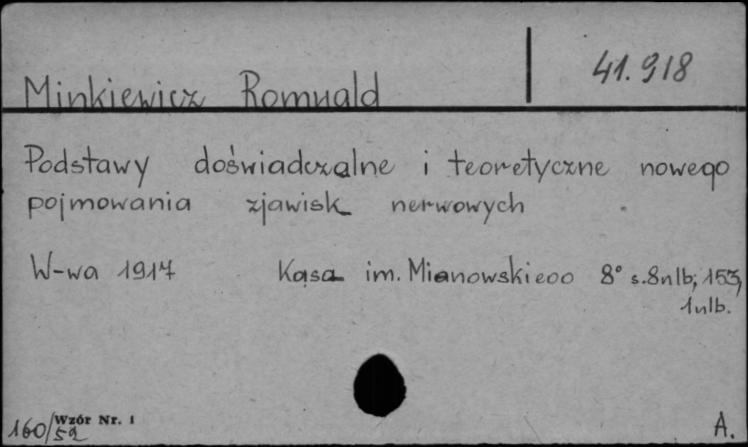 41.918
Minkiewicz Romuald
Podstawy doświadczalne i teoretyczne nowego
pojmowania zjawisk nerwowych
W-wa 1917 Kasa im. Mianowskiego 8° s.8nlb; 153,
1nlb.
160/52 Wzór Nr. 1
A.